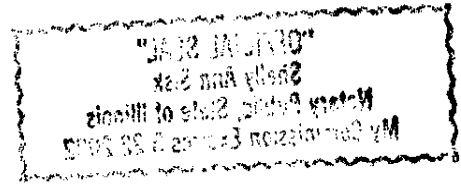 "OFFICIAL SEAL"
Shelly Ann Sisk
Notary Public, State of Illinois
My Commission Expires